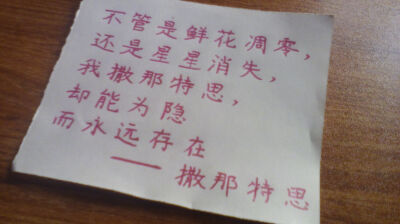 不管是鲜花凋零，
还是星星消失，
我撒那特思，
却能为隐
而永远存在
——撒那特思